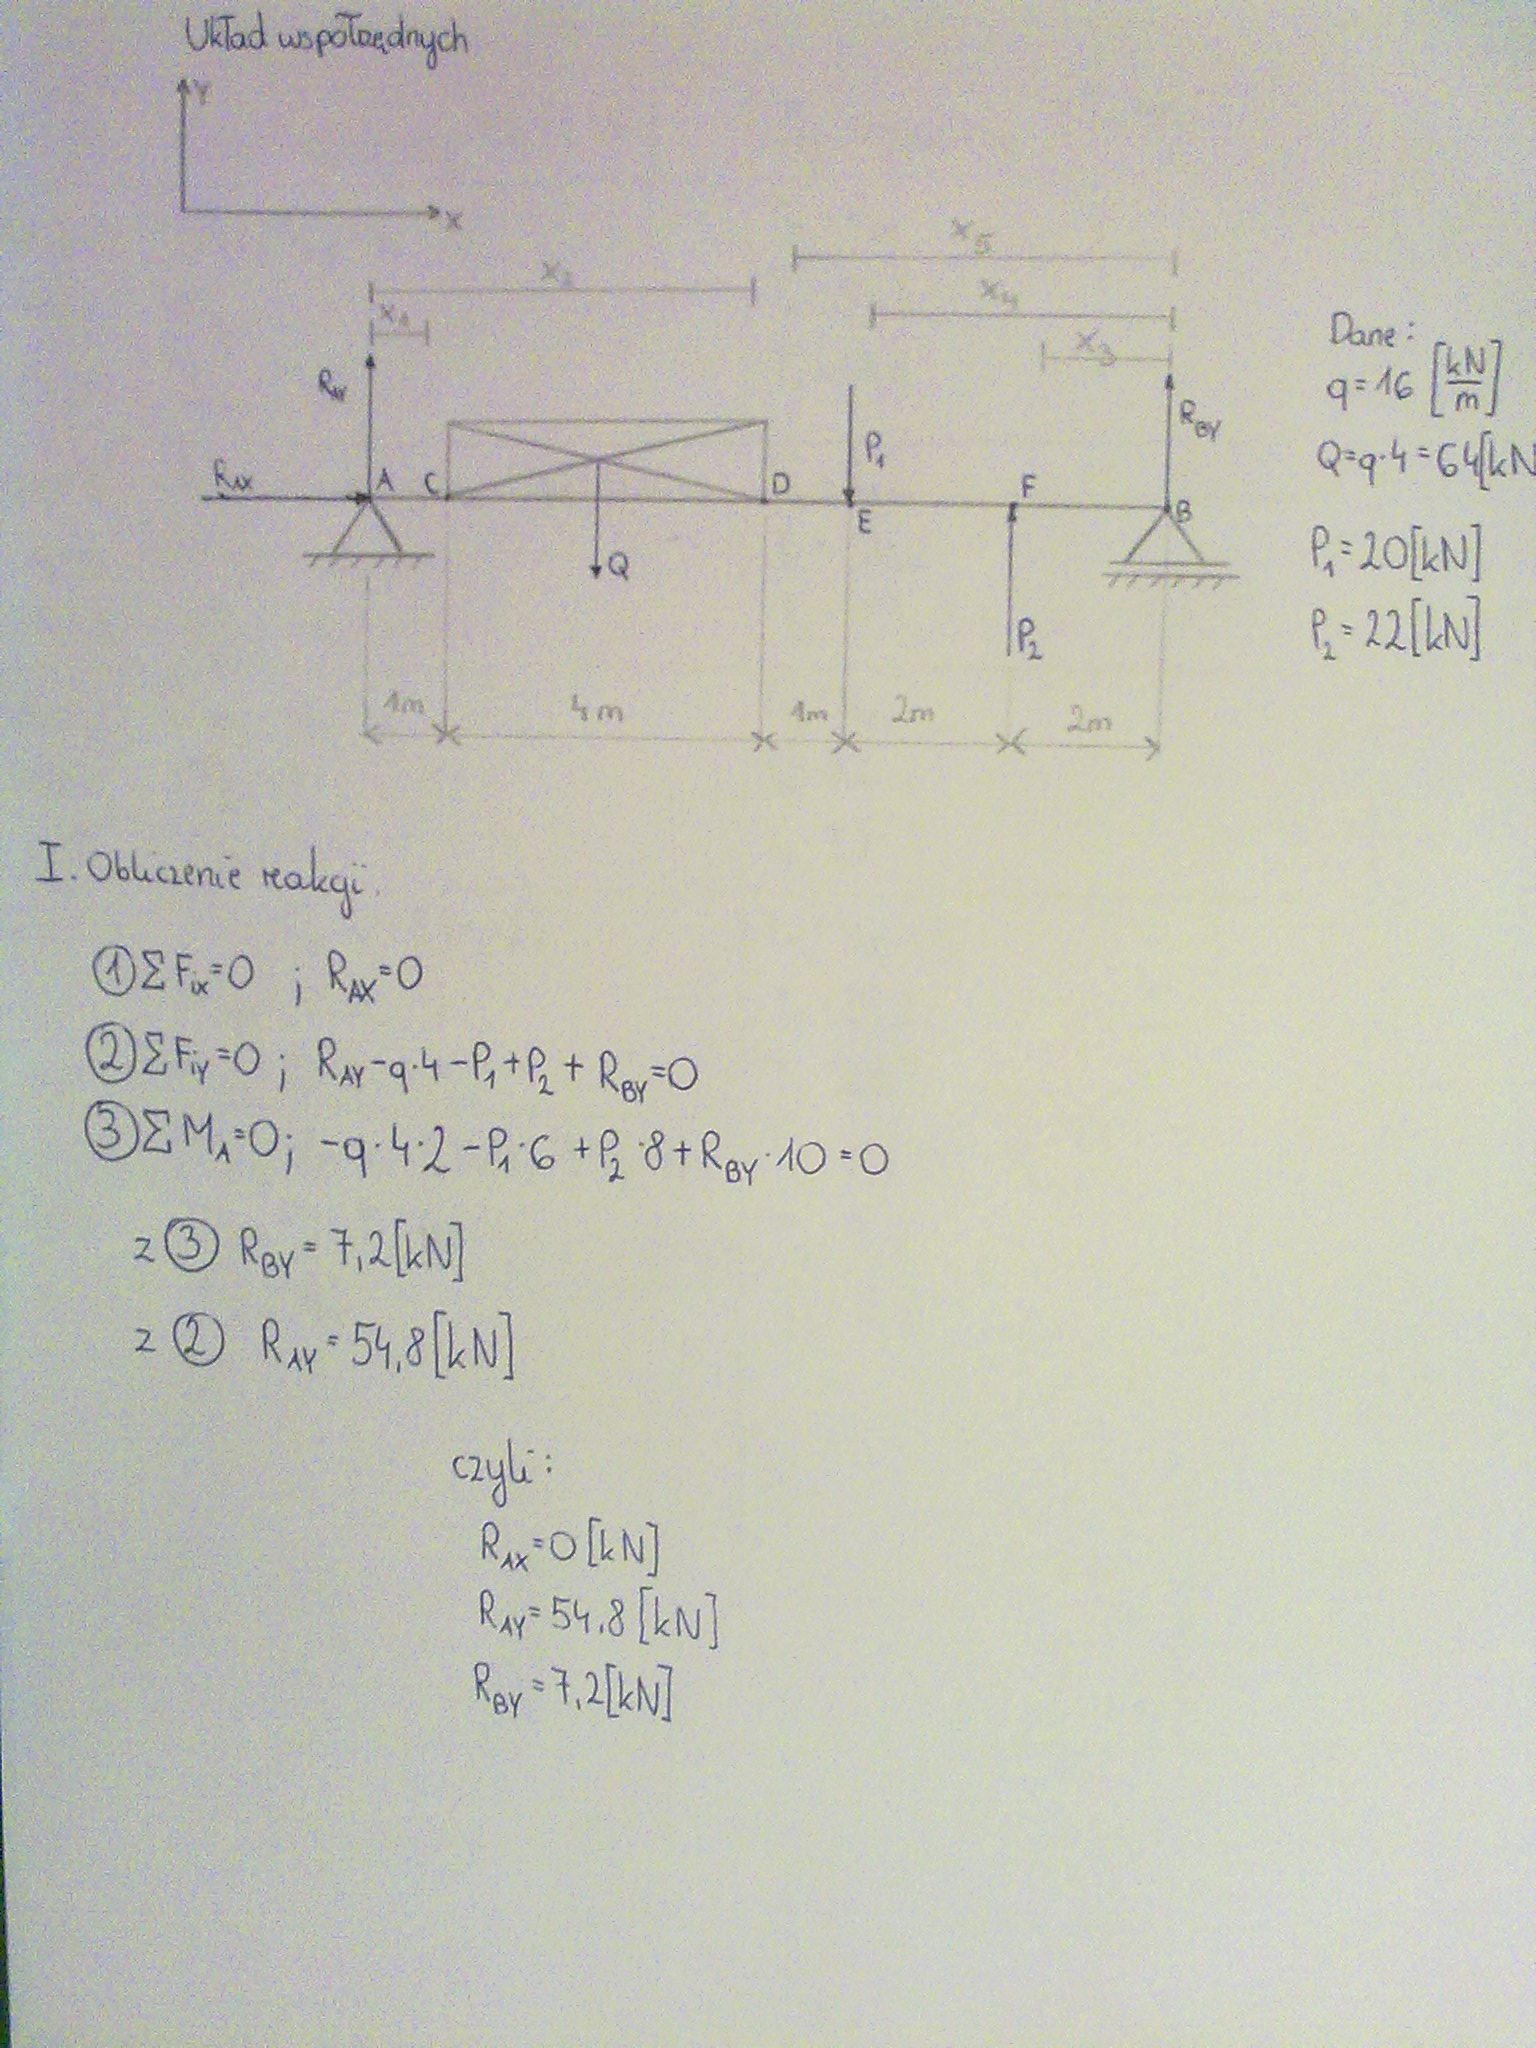 Układ współrzędnych
Y
X
X₅
X₂
X₄
X₁
X₃
R_AY
R_BY
P₁
R_AX
A
C
D
E
F
B
Q
P₂
1m
4m
1m
2m
2m
Dane:
q=16 [kN/m]
Q=q·4=64[kN
P₁=20[kN]
P₂=22[kN]
I. Obliczenie reakcji.
① ΣFix=0 ; R_AX=0
② ΣFiY=0 ; R_AY-q·4-P₁+P₂+R_BY=0
③ ΣM_A=0; -q·4·2-P₁·6+P₂·8+R_BY·10=0
z ③ R_BY=7,2[kN]
z ② R_AY=54,8[kN]
czyli:
R_AX=0[kN]
R_AY=54,8[kN]
R_BY=7,2[kN]